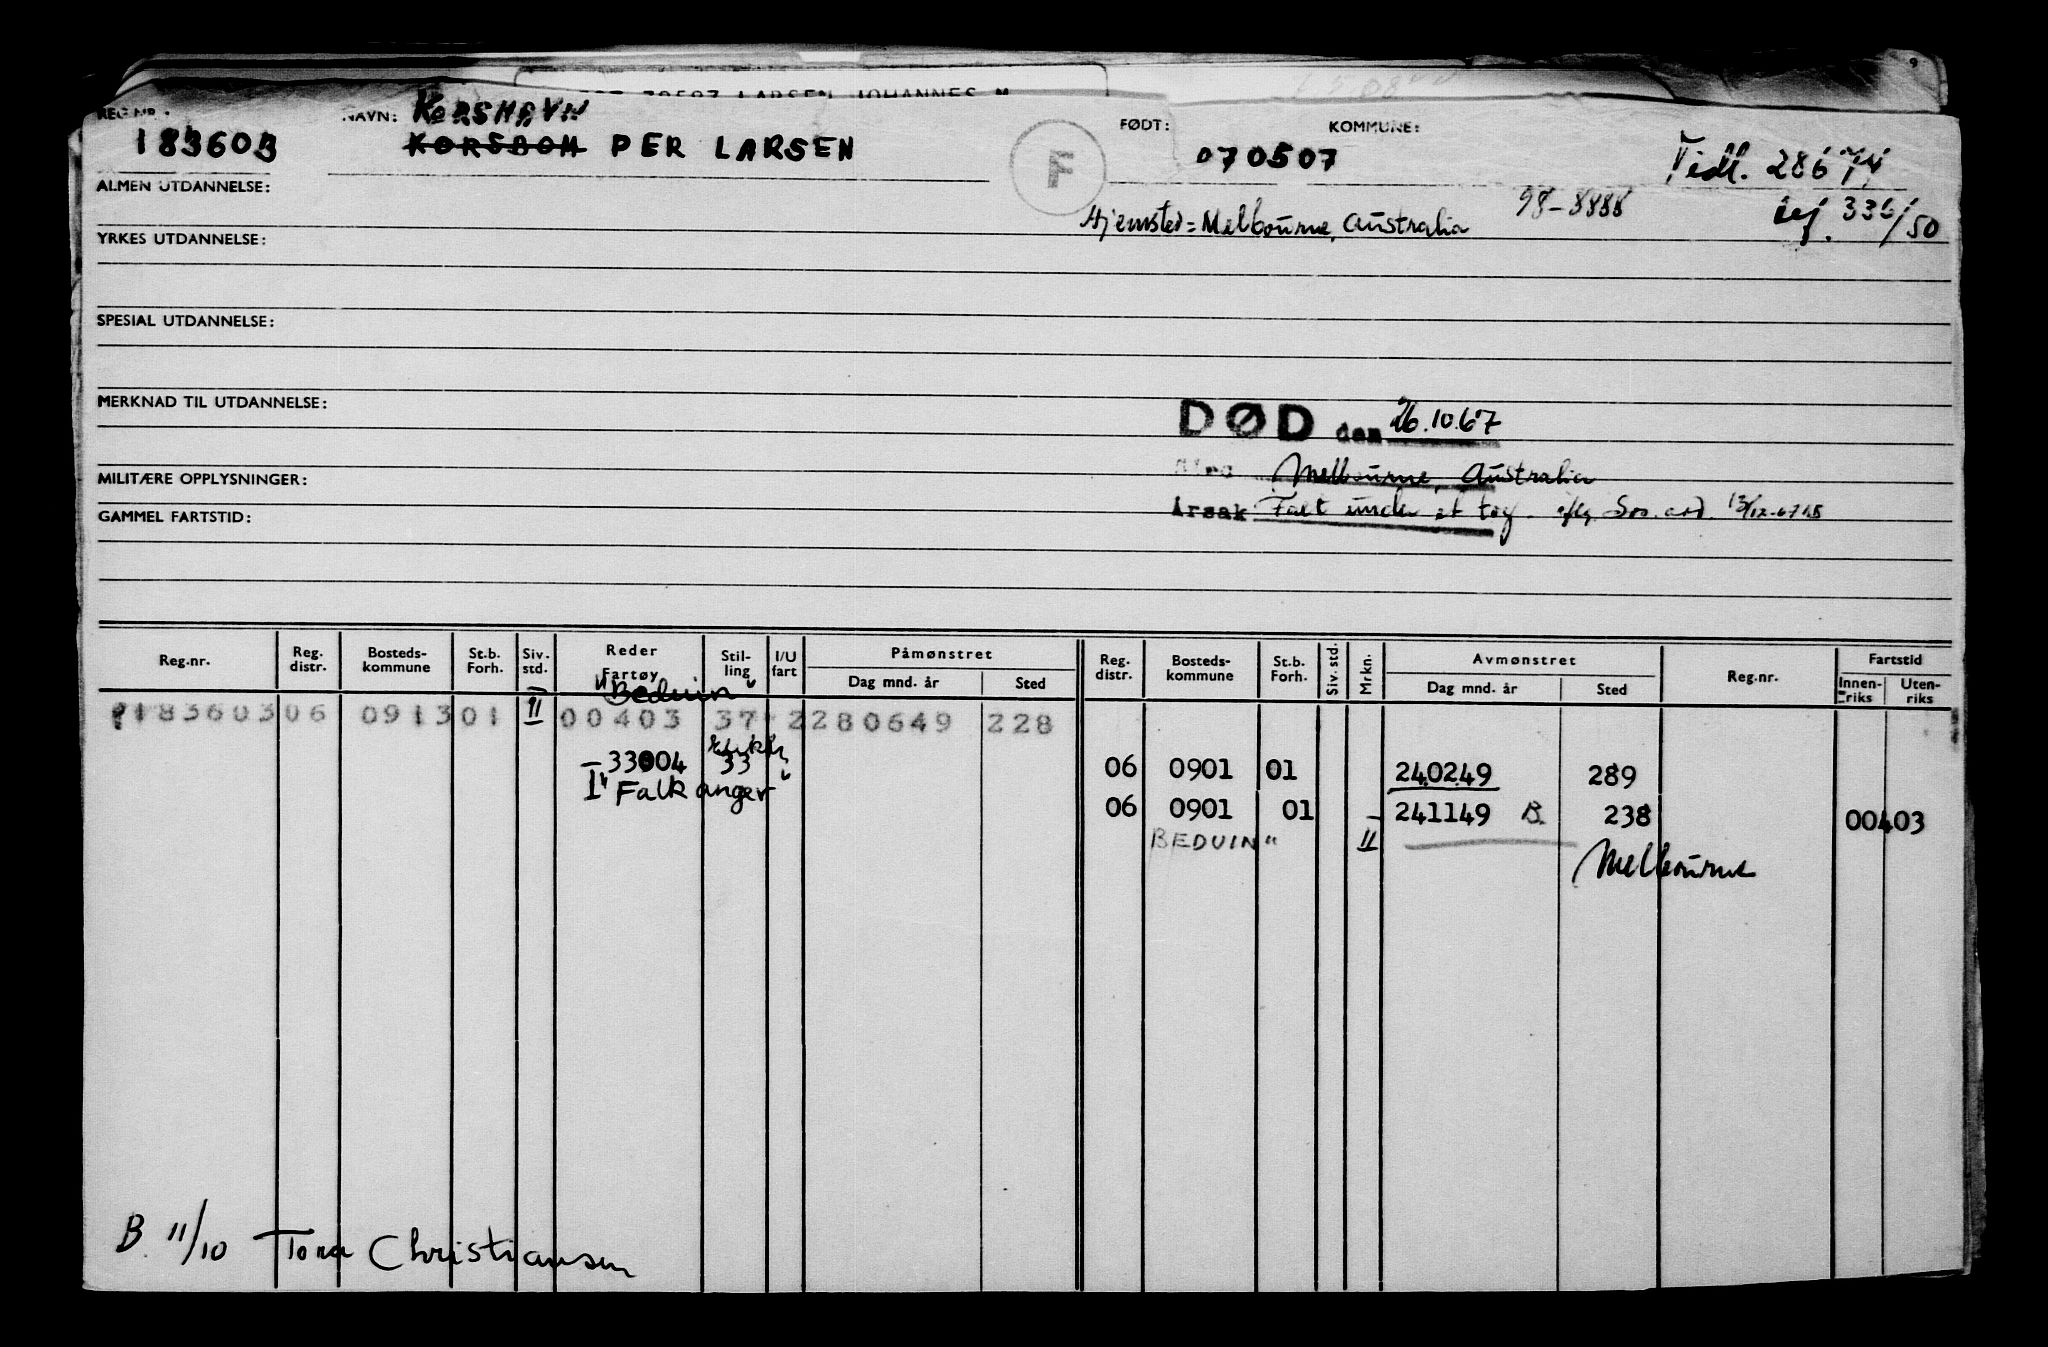 LARSEN JOHANNES M
REG.NR.: NAVN: KORSHAVN FØDT: KOMMUNE:
183603 KORSBOM PER LARSEN F 070507 Tidl. 28674
ALMEN UTDANNELSE:
Hjemsted = Melbourne, Australia 98-8888 336/50
YRKES UTDANNELSE:
SPESIAL UTDANNELSE:
MERKNAD TIL UTDANNELSE:
DØD den 26.10.67
MILITÆRE OPPLYSNINGER: Melbourne, Australia
GAMMEL FARTSTID: Årsak Falt under et tog.
Reg.nr. Reg. distr. Bosteds-kommune St.b. Forh. Siv. std. Reder Fartøy Stil-ling I/U fart Påmønstret Dag mnd. år Sted Reg. distr. Bosteds-kommune St.b. Forh. Siv. std. Mrkn. Avmønstret Dag mnd. år Sted Reg.nr. Fartstid Innen-riks Uten-riks
"Beduin"
183603 06 0913 01 II 00403 37 2 280649 228
33004 33 06 0901 01 240249 289
"Falkanger"
06 0901 01 241149 B. 238 00403
BEDUIN" II
Melbourne
B. 11/10 Tora Christiansen